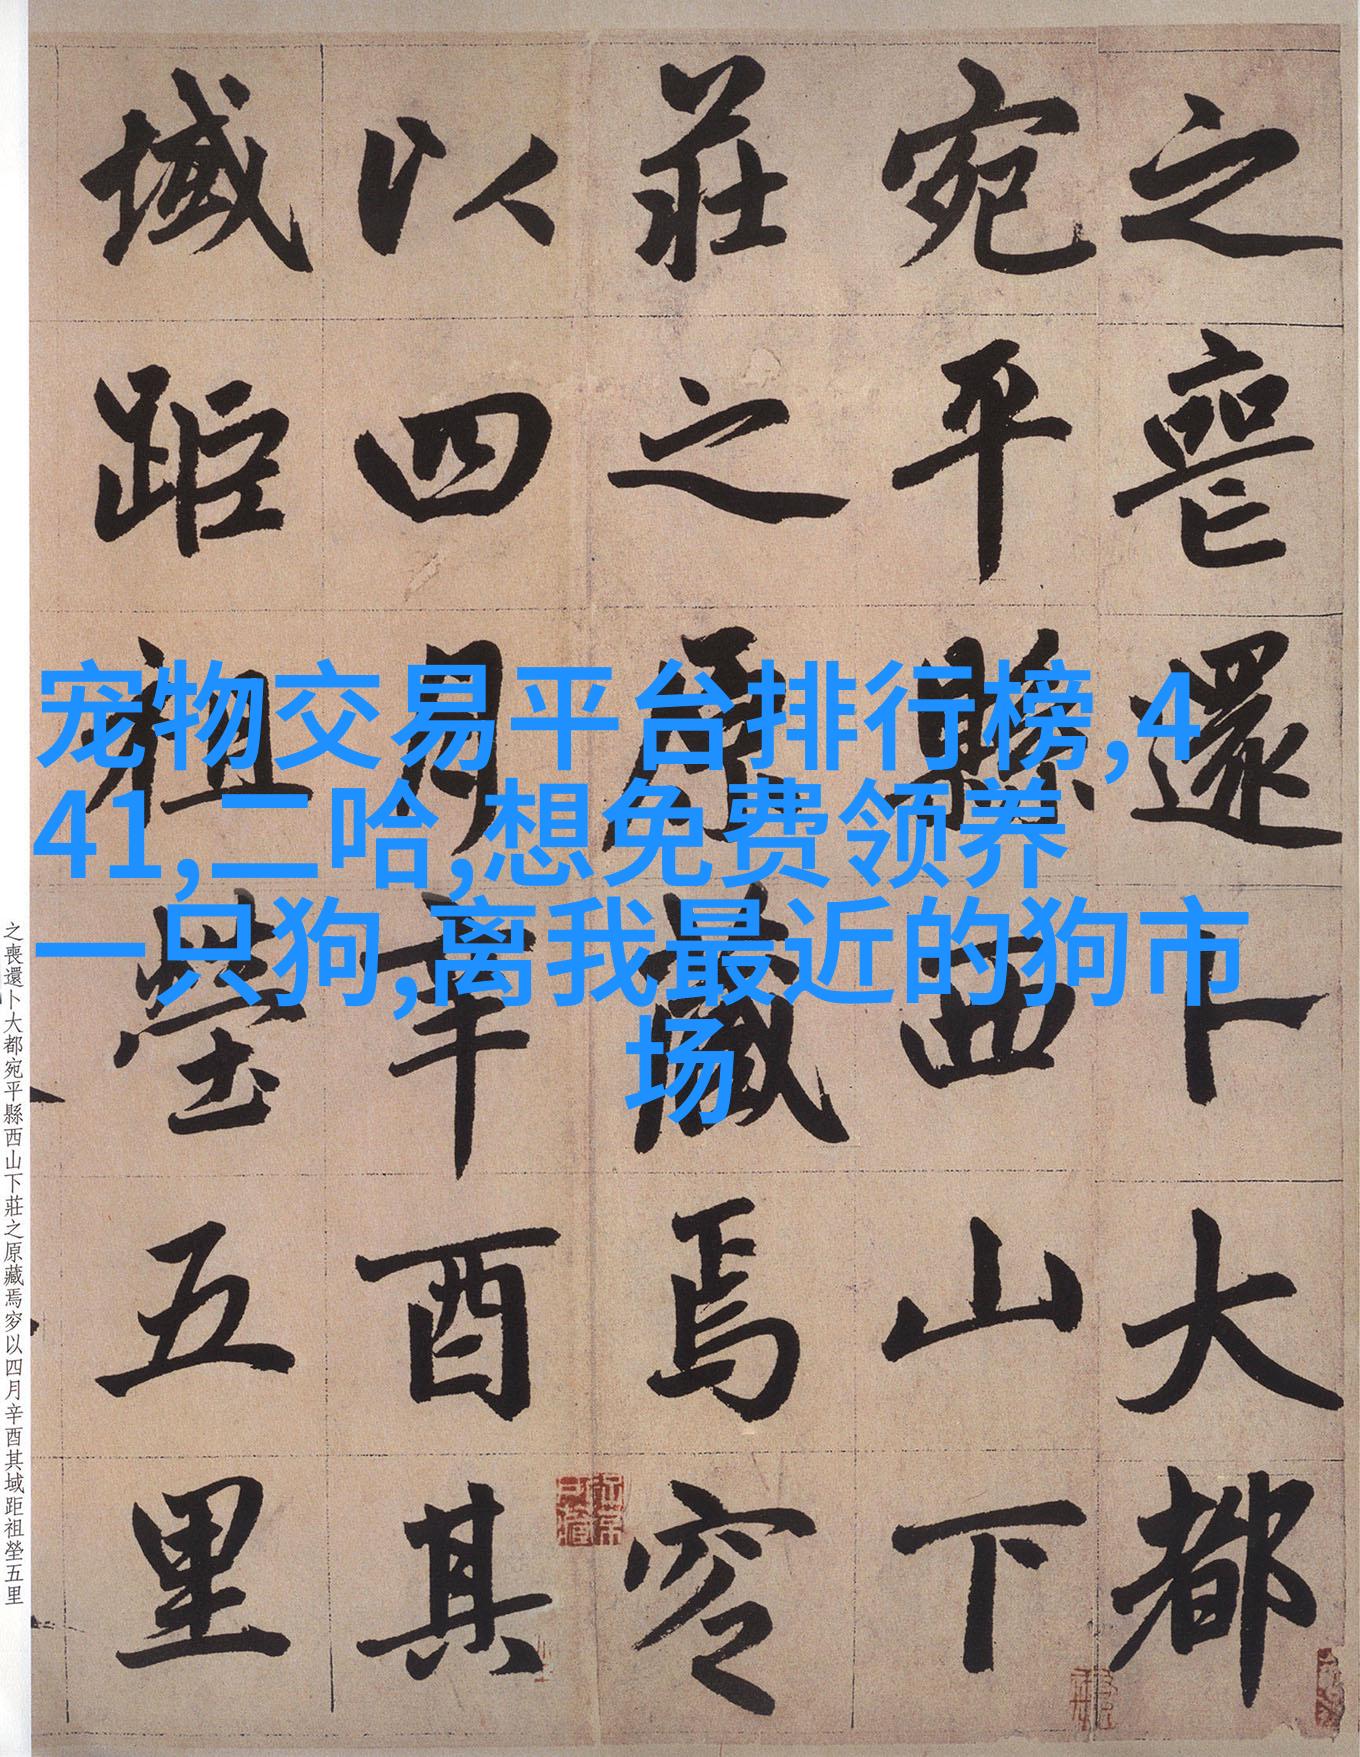 宠物交易平台排行榜,4
41,二哈,想免费领养
一只狗,离我最近的狗市
场
之喪還卜大都
宛平縣西山下
莊之原藏焉穸
以四月辛酉其
域距祖塋五里
之喪還卜大都宛平縣西山下莊之原藏焉穸以四月辛酉其域距祖塋五里